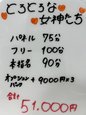 とろとろな
女神たち
パネル 75分
フリー 100分
本指名 90分
オプション
パック + 9000円×3
合計
51.000円